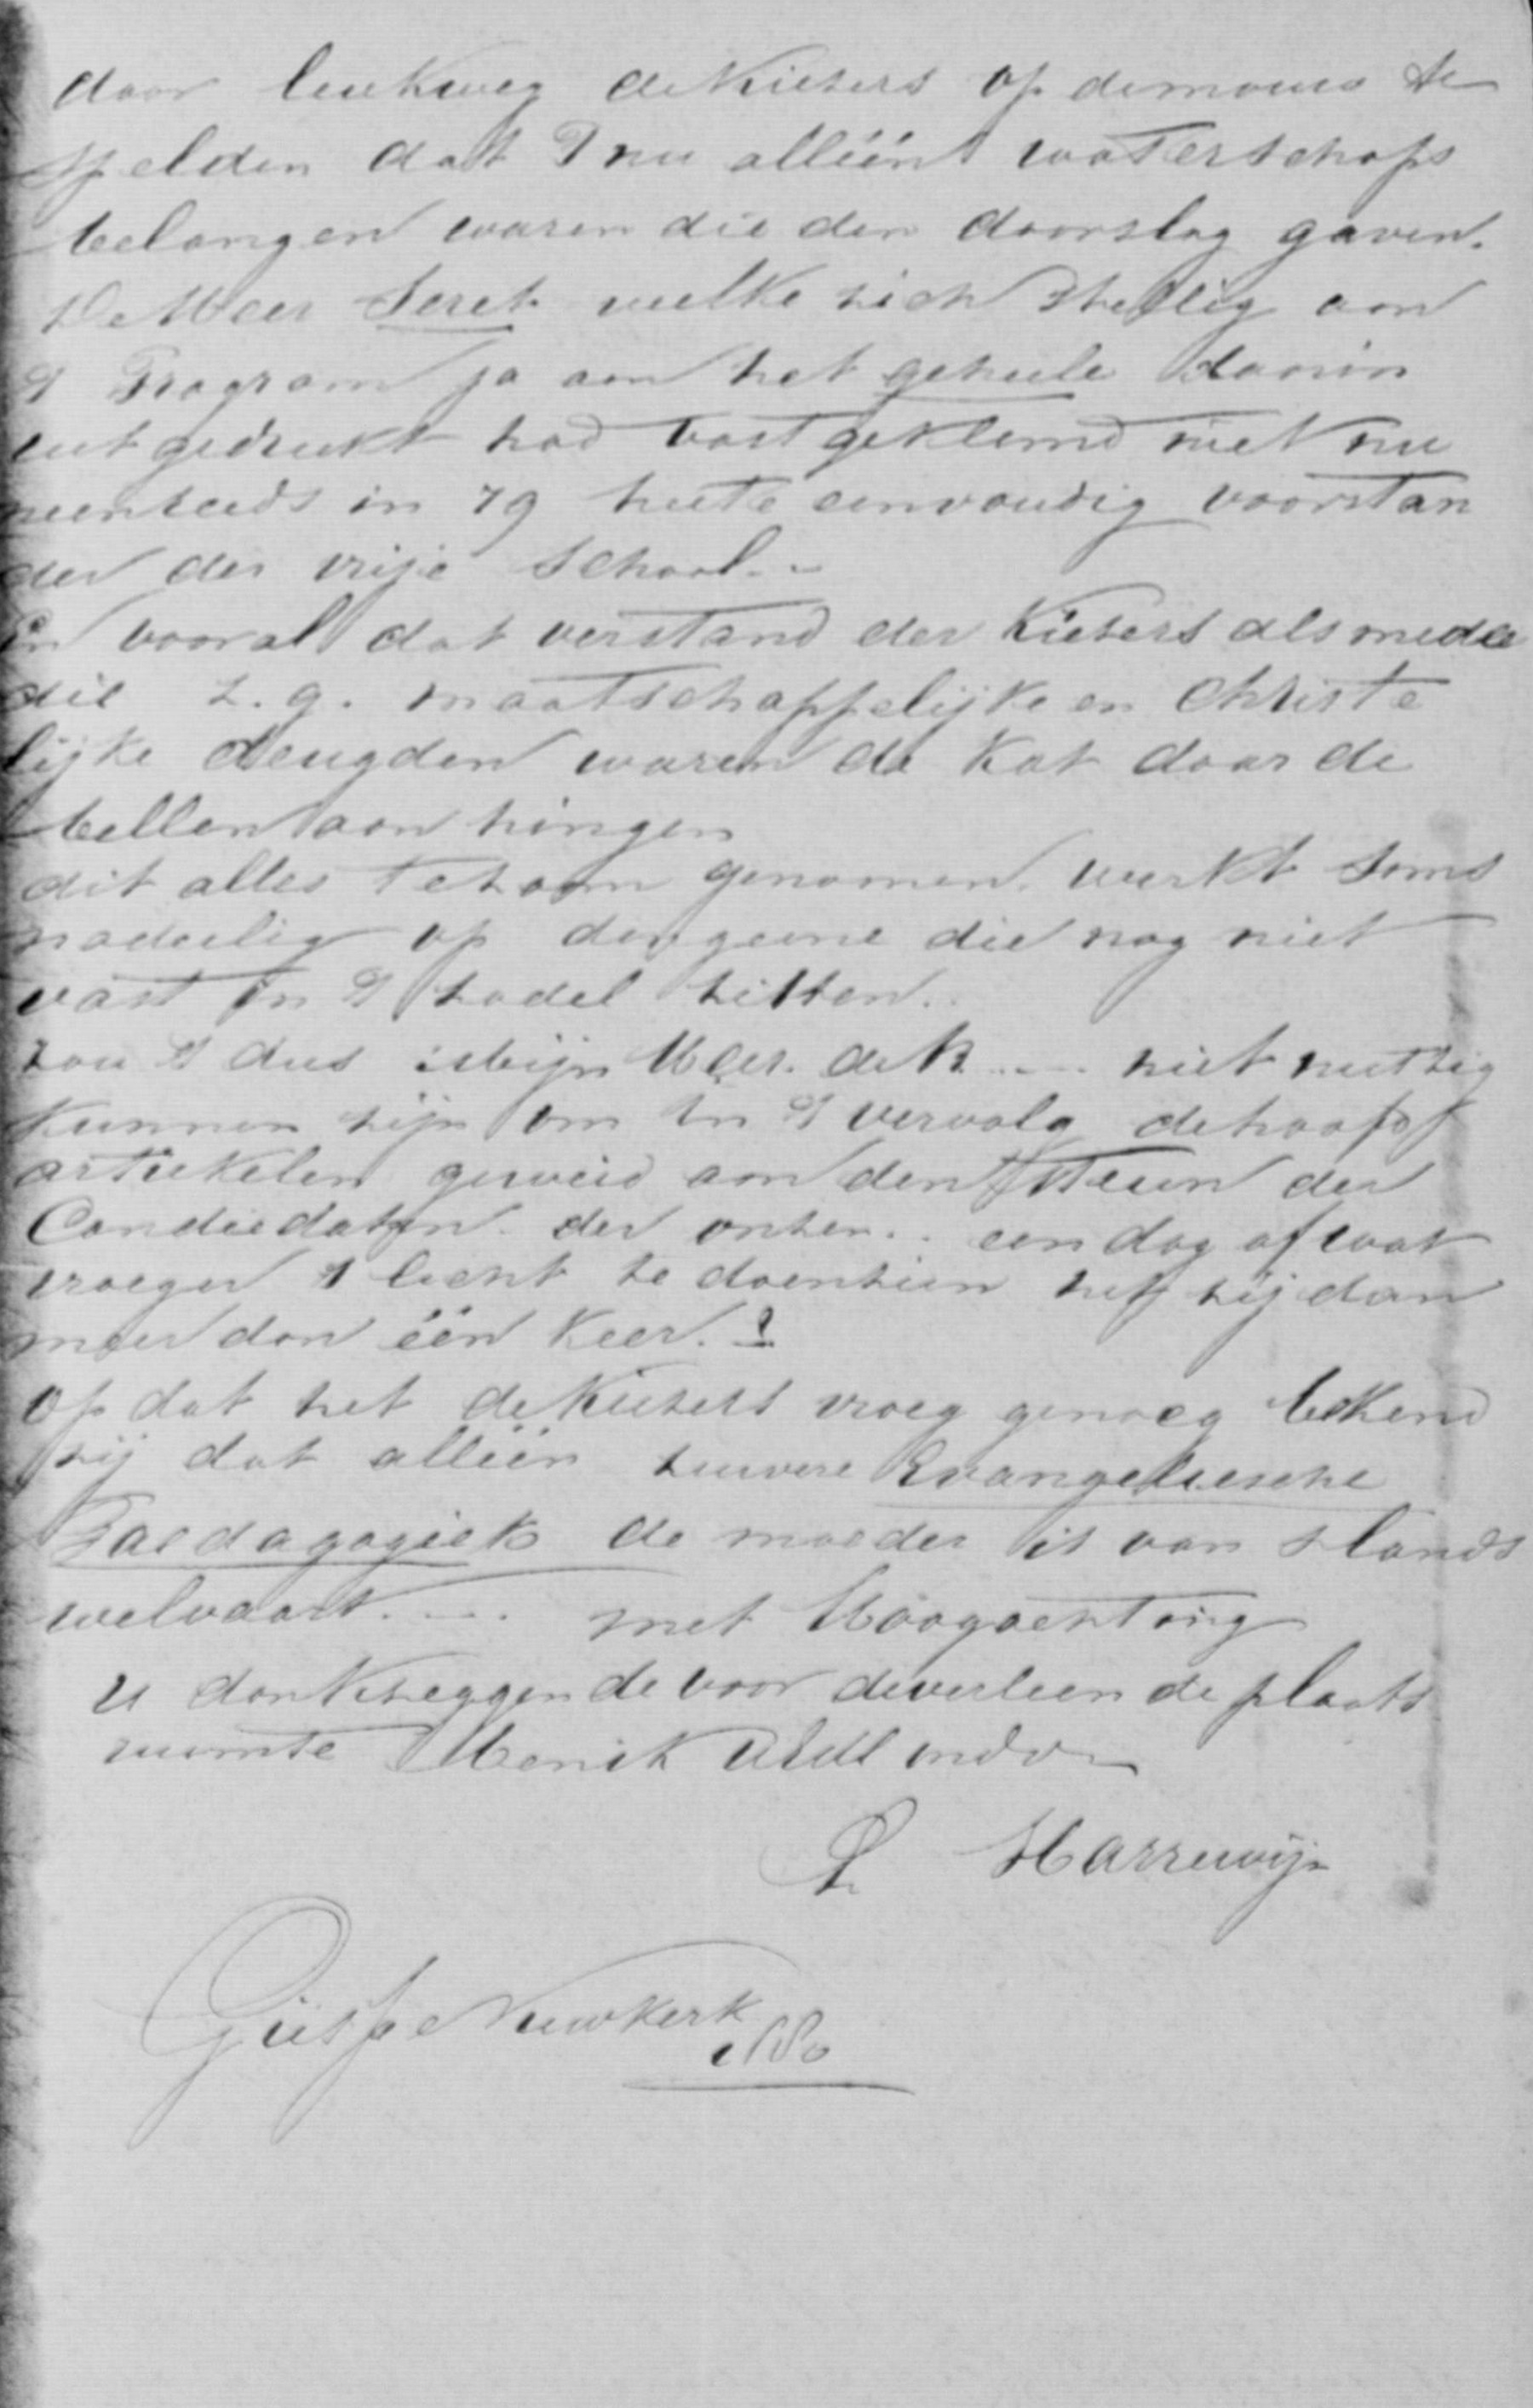 door leukweg de Kiezers op de mouw te
spelden dat 't nu alléén waterschaps
belangen waren die den doorslag gaven.
De Heer Seret welke zich stellig aan
't Program ja aan het geheele daarin
uitgedrukt had vastgeklemd niet nu
neen reeds in 79 heete eenvoudig voorstan
der der vrije School..
En vooral dat verstand der Kiezers als mede
die z.g. maatschappelijke en Christe
lijke deugden waren de Kat daar de
bellen aan hingen
dit alles te zaam genomen werkt soms
nadeelig op dengeene die nog niet
vast in 't zadel zitten..
zou 't dus Mijn Heer de R.... niet nuttig
Kunnen zijn om in 't vervolg de hoofd
artiekelen geweid aan den steun der
Candiedaten der onzen.. een dag of wat
vroeger 't licht te doen zien het zij dan
meer dan één Keer.!
op dat het de Kiezers vroeg genoeg bekend
zij dat alléén zuivere Evangeliesche
Paedagogiek de moeder is van s Lands
welvaart... met Hoogachting
U dank zeggende voor de verleende plaats
ruimte Ben ik UEd
L Harrewijn
Giesse Nieuwkerk